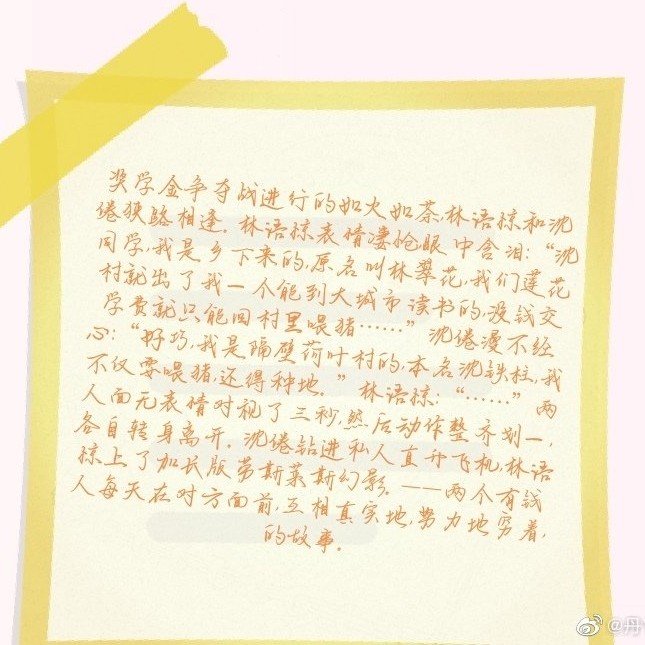 奖学金争夺战进行的如火如荼,林语惊和沈
倦狭路相逢。林语惊表情凄怆眼中含泪:“沈
同学,我是乡下来的,原名叫林翠花,我们莲花
村就出了我一个能到大城市读书的,没钱交
学费就只能回村里喂猪……”沈倦漫不经
心:“好巧,我是隔壁荷叶村的,本名沈铁柱,我
不仅要喂猪,还得种地。”林语惊:“……”两
人面无表情对视了三秒,然后动作整齐划一,
各自转身离开。沈倦钻进私人直升飞机,林语
惊上了加长版劳斯莱斯幻影。——两个有钱
人每天在对方面前,互相真实地,努力地穷着,
的故事。
@丹